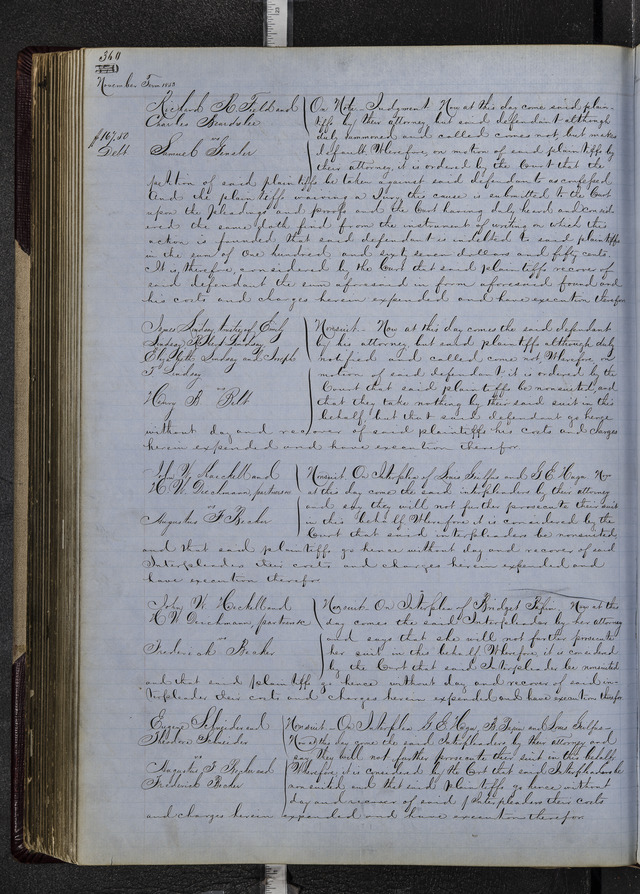 340
November Term 18
Richard R. Field and
Charles Beardslee
vs
Samuel
$167.50
Debt
On Note. Judgment. Now at this day come said plain-
tiffs by their attorney but said defendant although
duly summoned and called comes not, but makes
default. Wherefore, on motion of said plaintiffs by
their attorney, it is ordered by the Court that the
petition of said plaintiffs be taken against said defendant as confessed
And the plaintiffs waiving a Jury this cause is submitted to the Court
upon the pleadings and proofs and the Court having duly heard and consid-
ered the same doth find from the instrument of writing on which this
action is founded that said defendant is indebted to said plaintiffs
in the sum of One hundred and sixty seven dollars and fifty cents.
It is therefore considered by the Court that said plaintiffs recover of
said defendant the sum aforesaid in form aforesaid found and
his costs and charges herein expended and have execution therefor
James Lindsay trustee of Emily
Lindsay
Lindsay and Joseph
Lindsay
vs
Henry B. Belt
Nonsuit. Now at this day comes the said defendant
by his attorney, but said plaintiffs although duly
notified and called come not. Wherefore on
motion of said defendant it is ordered by the
Court that said plaintiffs be nonsuited, and
that they take nothing by their said suit in this
behalf, but that said defendant go hence
without day and recover of said plaintiffs his costs and charges
herein expended and have execution therefor
John W.
H. W. Deichmann, partners
vs
Augustus F. Becker
Nonsuit. On Interplea of Louis and G. E. Now
at this day come the said interpleaders by their attorney
and say they will not further prosecute their suit
in this behalf. Wherefore it is considered by the
Court that said interpleaders be nonsuited
and that said plaintiffs go hence without day and recover of said
Interpleaders their costs and charges herein expended and
have execution therefor
John W. and
H. W. Deichmann, partners
vs
Frederick Becker
Nonsuit. On Interplea of Bridget Now at this
day comes the said Interpleader by her attorney
and says that she will not further prosecute
her suit in this behalf. Wherefore it is considered
by the Court that said Interpleader be nonsuited
and that said plaintiffs go hence without day and recover of said in-
terpleader their costs and charges herein expended and have execution therefor
Eugene Schneider and
Theodore Schneider
vs
Augustus F. and
Frederick Becker
Nonsuit. On Interplea G. E. B. and Louis
Now at this day come the said Interpleaders by their attorney and
say they will not further prosecute their suit in this behalf.
Wherefore it is considered by the Court that said Interpleaders be
nonsuited and that said plaintiffs go hence without
day and recover of said Interpleaders their costs
and charges herein expended and have execution therefor